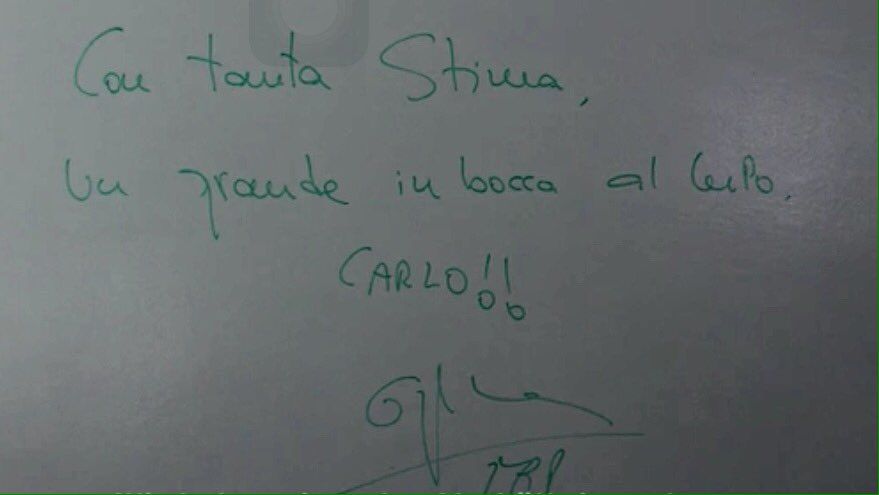 Con tanta Stima,
un grande in bocca al lupo.
CARLO!!